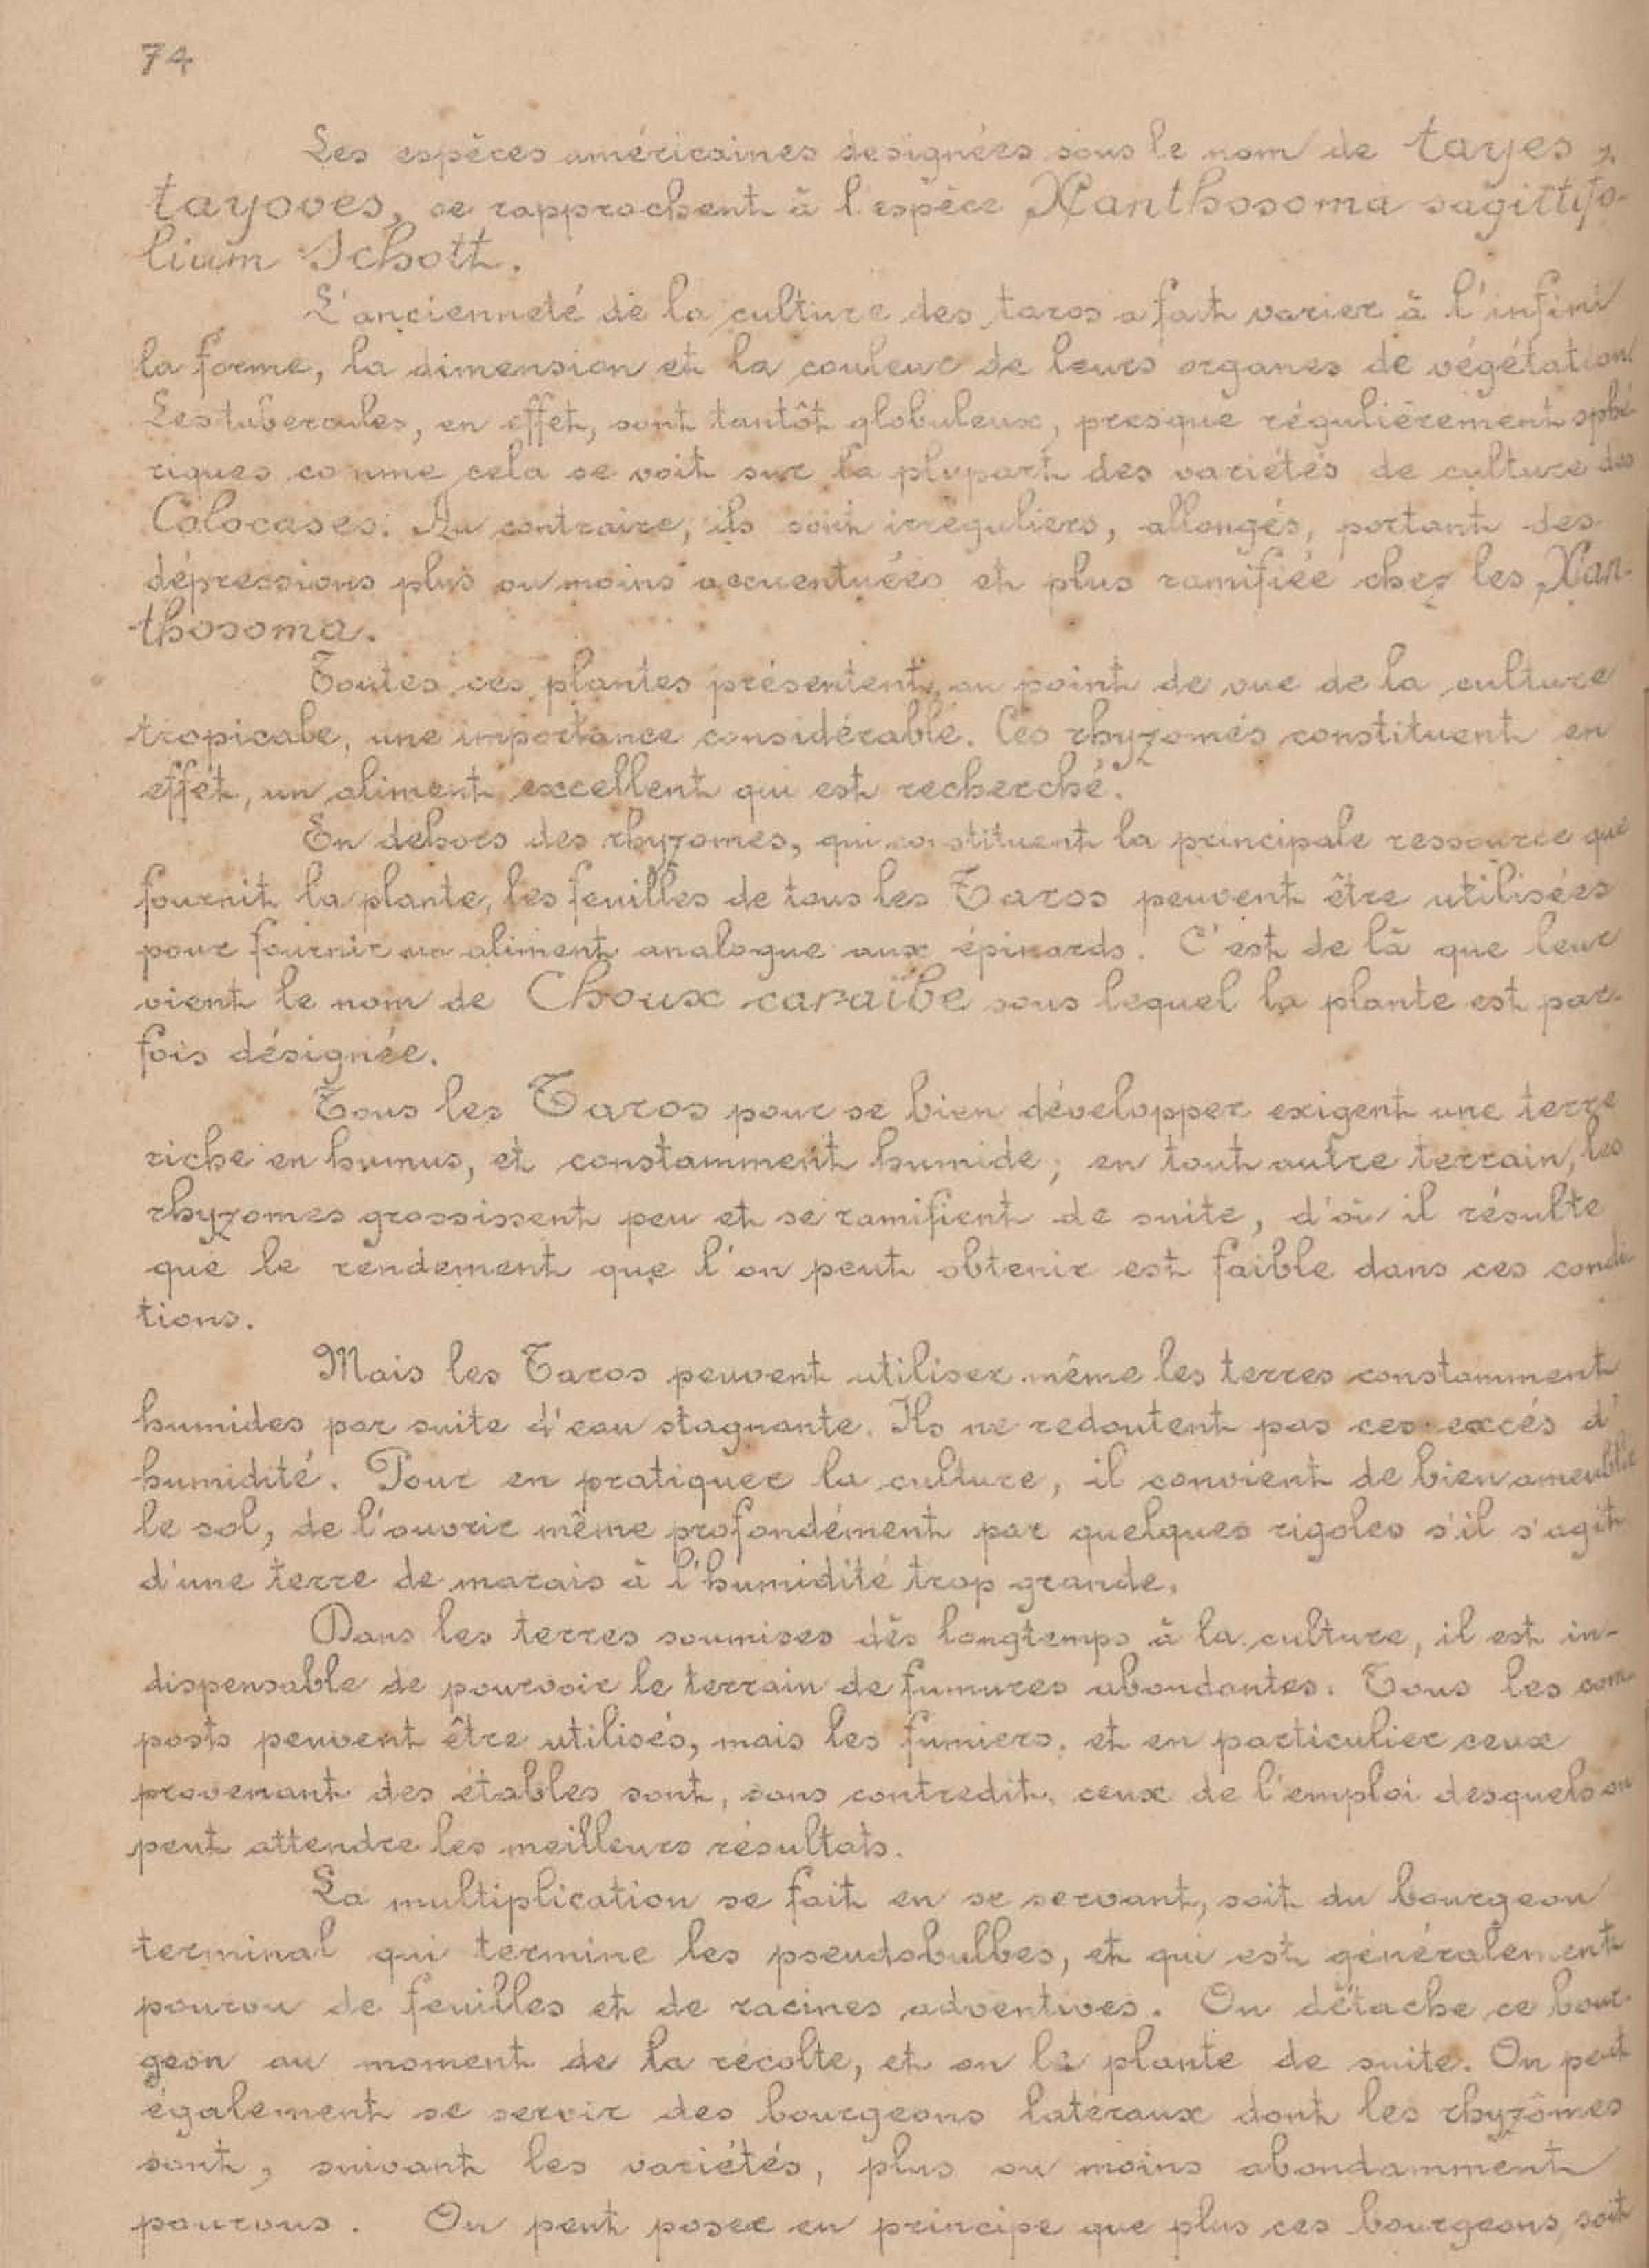 74
Les espèces américaines designées sous le nom de tayes,
tayoves, se rapprochent à l'espèce Xanthosoma sagittifo-
lium Schott.
L'ancienneté de la culture des taros a fait varier à l'infini
la forme, la dimension et la couleur de leurs organes de végétation
Les tubercules, en effet, sont tantôt globuleux, presque régulièrement sphé
riques comme cela se voit sur la plupart des variétés de culture des
Colocases. Au contraire, ils sont irréguliers, allongés, portant des
dépressions plus ou moins accuentuées et plus ramifiée chez les Xan-
thosoma.
Toutes ces plantes présentent, au point de vue de la culture
tropicale, une importance considérable. Ces rhyzomes constituent en
effet, un aliment excellent qui est recherché.
En dehors des rhyzomes, qui constituent la principale ressource que
fournit la plante, les feuilles de tous les Taros peuvent être utilisées
pour fournir un aliment analogue aux épinards. C'est de là que leur
vient le nom de Choux caraïbe sous lequel la plante est par-
fois désignée.
Tous les Taros pour se bien développer exigent une terre
riche en humus, et constamment humide; en tout autre terrain, les
rhyzomes grossissent peu et se ramifient de suite, d'où il résulte
que le rendement que l'on peut obtenir est faible dans ces condi
tions.
Mais les Taros peuvent utiliser même les terres constamment
humides par suite d'eau stagnante. Ils ne redoutent pas ces excés d'
humidité. Pour en pratiquer la culture, il convient de bien ameublir
le sol, de l'ouvrir même profondément par quelques rigoles s'il s'agit
d'une terre de marais à l'humidité trop grande.
Dans les terres soumises dès longtemps à la culture, il est in-
dispensable de pourvoir le terrain de fumures abondantes. Tous les com
posts peuvent être utilisés, mais les fumiers, et en particulier ceux
provenant des étables sont, sans contredit, ceux de l'emploi desquels on
peut attendre les meilleurs résultats.
La multiplication se fait en se servant, soit du bourgeon
terminal qui termine les pseudobulbes, et qui est généralement
pourvu de feuilles et de racines adventives. On détache ce bour-
geon au moment de la récolte, et on le plante de suite. On peut
également se servir des bourgeons latéraux dont les rhyzômes
sont, suivant les variétés, plus ou moins abondamment
pourvus. On peut poser en principe que plus ces bourgeons, soit